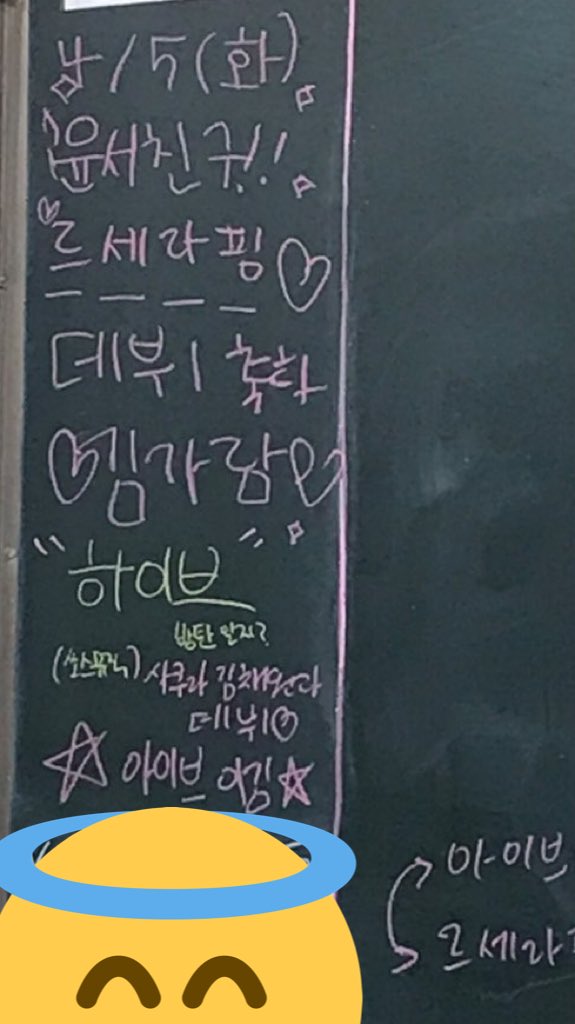 4/5(화)
윤서친구!!
르세라핌
데뷔 축하
김가람
"하이브"
방탄 알지?
(쏘스뮤직) 사쿠라 김채원 다
데뷔
아이브 이김
아이브
르세라